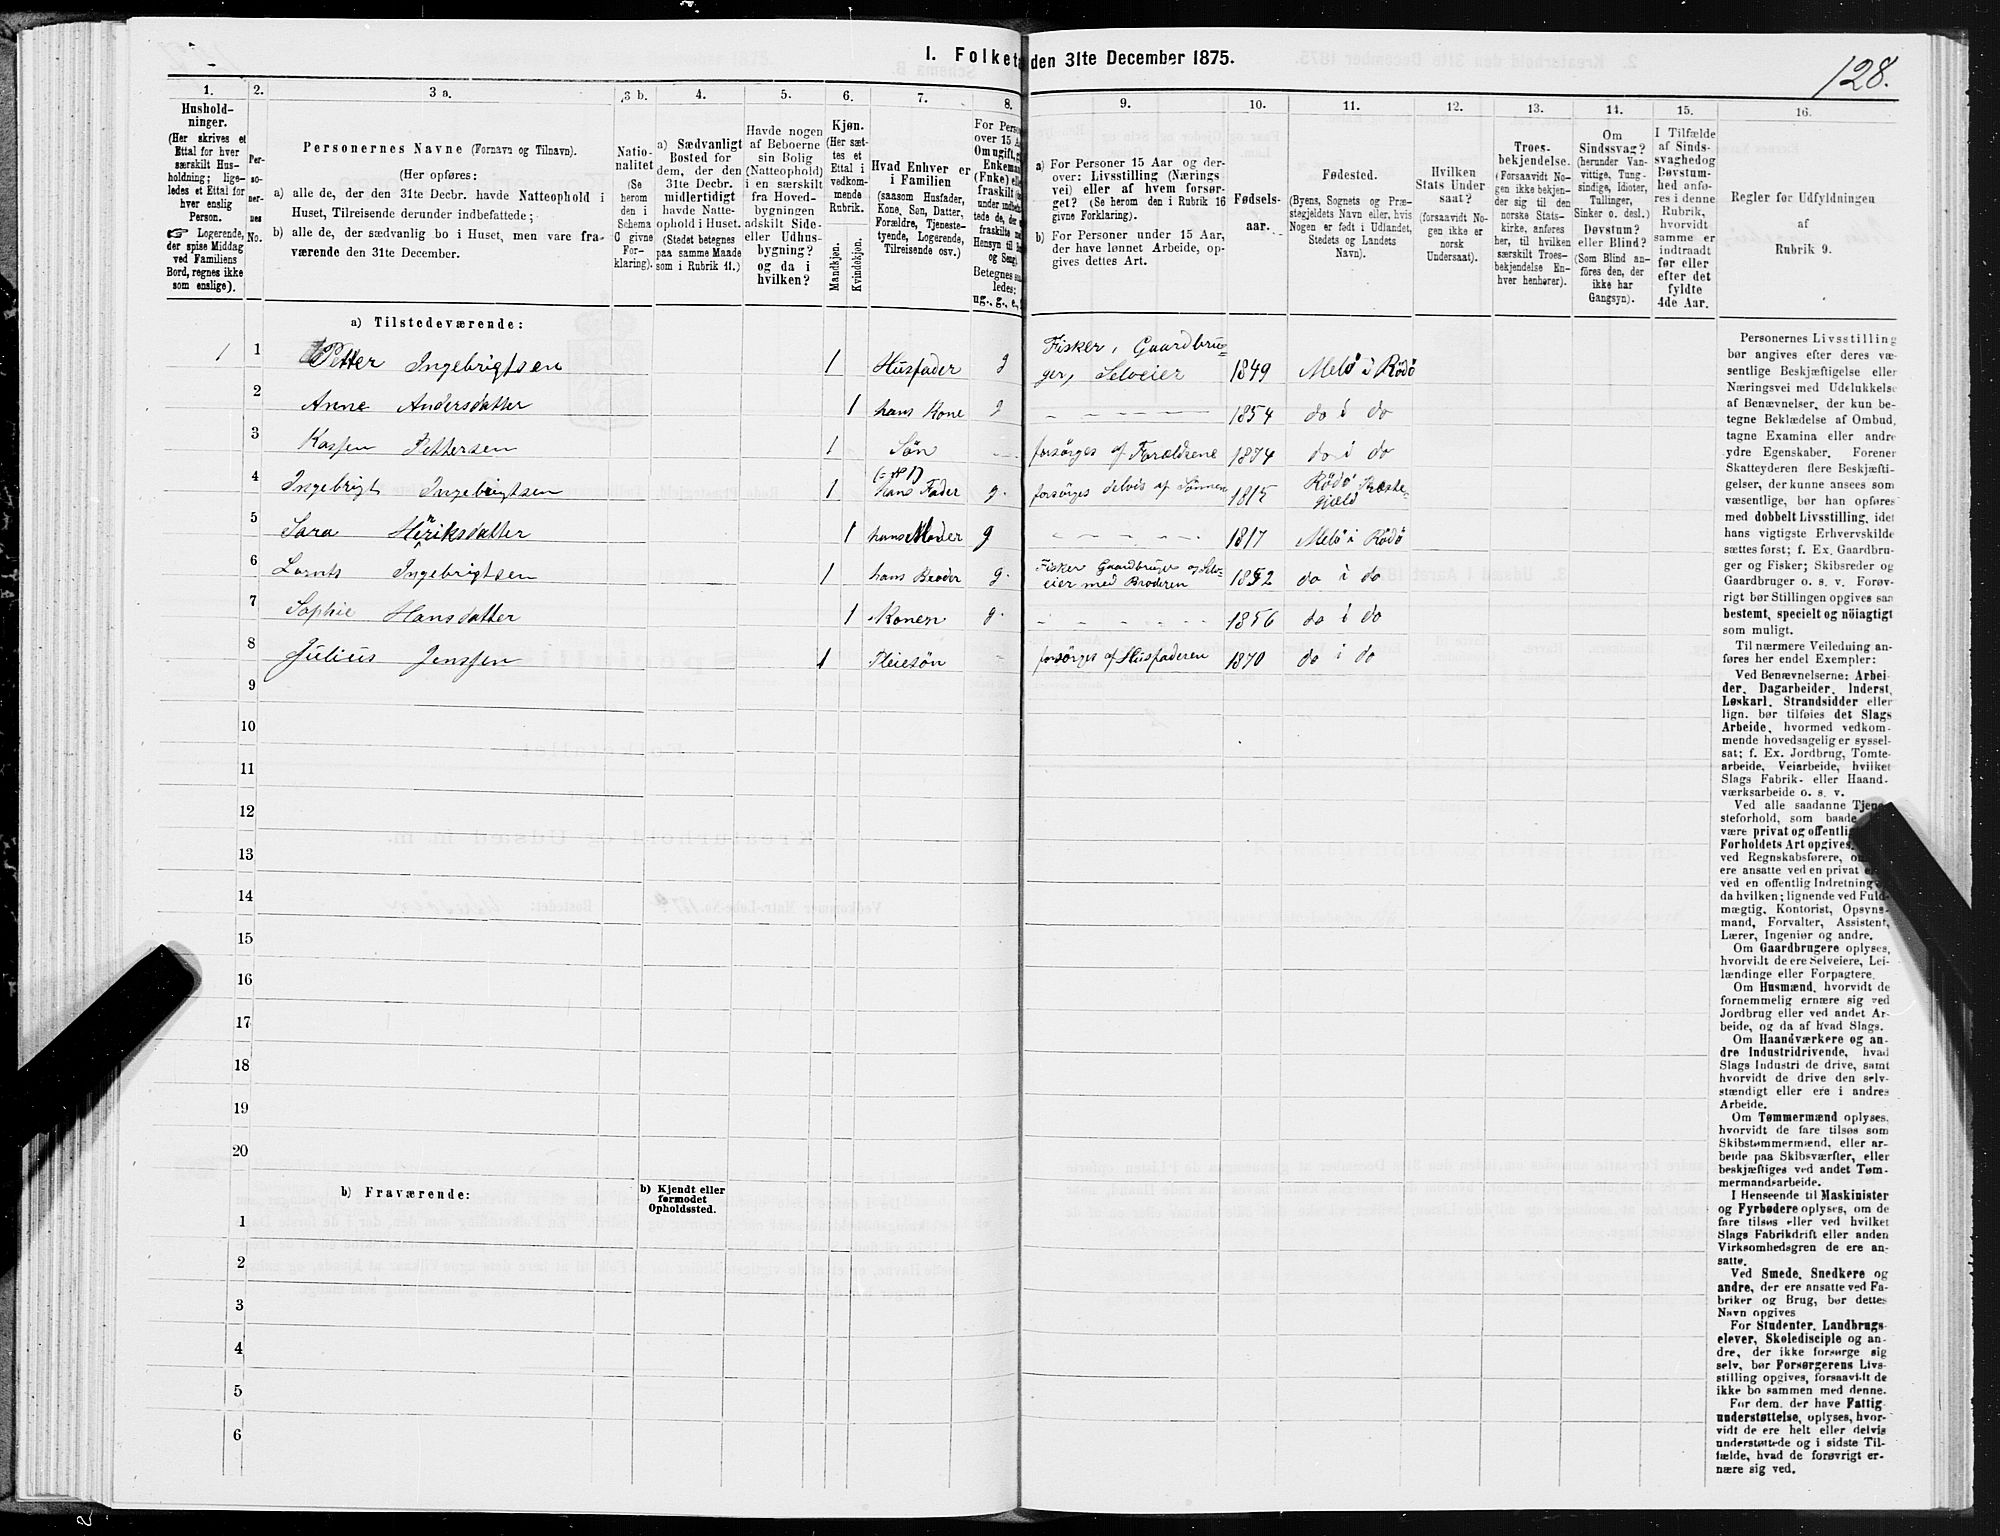 I. Folket den 31te December 1875.
128.
1. 2. 3 a. 3 b. 4. 5. 6. 7. 8. 9. 10. 11. 12. 13. 14. 15. 16.
Hushold-
ninger.
(Her skrives et
Ettal for hver
særskilt Hus-
holdning; lige-
ledes et Ettal for
hver enslig
Person.
☞ Logerende,
der spise Middag
ved Familiens
Bord, regnes ikke
som enslige).
Per-
so-
ner-
nes
No.
Personernes Navne (Fornavn og Tilnavn).
(Her opføres:
a) alle de, der den 31te Decbr. havde Natteophold i
Huset, Tilreisende derunder indbefattede;
b) alle de, der sædvanlig bo i Huset, men vare fra-
værende den 31te December.
Natio-
nalitet
(Se
herom
den i
Schema
C givne
For-
klaring).
a) Sædvanligt
Bosted for
dem, der den
31te Decbr.
midlertidigt
havde Natte-
ophold i Huset.
(Stedet betegnes
paa samme Maade
som i Rubrik 11.)
Havde nogen
af Beboerne
sin Bolig
(Natteophold)
i en særskilt
fra Hoved-
bygningen
adskilt Side-
eller Udhus-
bygning?
og da i
hvilken?
Kjøn.
(Her sæt-
tes et
Ettal i
vedkom-
mende
Rubrik.
Mandkjøn.
Kvindekjøn.
Hvad Enhver er
i Familien
(saasom Husfader,
Kone, Søn, Datter,
Forældre, Tjeneste-
tyende, Logerende,
Tilreisende osv.)
For Perso
over 15 A
Om ugift, g
Enkema
(Enke) elle
fraskilt (s
under indbefa
tede de, de
fraskilte m
Hensyn til
og Seng).
Betegnes s
ledes:
ug., g., e.,
a) For Personer 15 Aar og der-
over: Livsstilling (Nærings
vei) eller af hvem forsør-
get? (Se herom den i Rubrik 16
givne Forklaring).
b) For Personer under 15 Aar,
der have lønnet Arbeide, op-
gives dettes Art.
Fødsels-
aar.
Fødested.
(Byens, Sognets og Præ-
stegjeldets Navn eller, hvis
Nogen er født i Udlandet,
Stedets og Landets
Navn).
Hvilken
Stats Under
saat?
(forsaavidt No-
gen ikke er
norsk
Undersaat).
Troes-
bekjendelse.
(Forsaavidt No-
gen ikke bekjen-
der sig til den
norske Stats-
kirke, anføres
her, til hvilken
særskilt Troes-
bekjendelse En-
hver henhører).
Om
Sindssvag?
(herunder Van-
vittige, Tung-
sindige, Idioter,
Tullinger,
Sinker o. desl.)
Døvstum?
eller Blind?
(Som Blind an-
føres den, der
ikke har
Gangsyn).
I Tilfælde
af Sinds-
svaghed og
Døvstum-
hed anfø-
res i denne
Rubrik,
hvorvidt
samme er
indtraadt
før eller
efter det
fyldte
4de Aar.
Regler for Udfyldningen
af
Rubrik 9.
a) Tilstedeværende:
1 1 Petter Ingebrigtsen 1 Husfader g Fisker, Gaardbru-
ger, Selveier 1849 Melø i Rødø
2 Anne Andersdatter 1 hans Kone g - - - - - 1854 do i do
3 Kasper Pettersen 1 Søn - forsørges af Forældrene 1874 do i do
4 Ingebrigt Ingebrigtsen 1 (= N 1) hans Fader g. forsørges delvis af Sønnen 1815 Rødø Præste-
Gjæld
5 Sara Henriksdatter 1 hans Moder g - - - - - 1817 Melø i Rødø
6 Lornts Ingebrigtsen 1 hans Broder g. Fisker Gaardbruger og Selv-
eier med Broderen 1852 do i do
7 Sophie Hansdatter 1 Konen g. - - - - - 1856 do i do
8 Julius Jenssen 1 Pleiesøn - forsørges af Husfaderen 1870 do i do
9
10
11
12
13
14
15
16
17
18
19
20
b) Fraværende:
b) Kjendt eller
formodet
Opholdssted.
1
2
3
4
5
6
Personernes Livsstilling
bør angives efter deres væ-
sentlige Beskjæftigelse eller
Næringsvei med Udelukkelse
af Benævnelser, der kun be-
tegne Beklædelse af Ombud,
tagne Examina eller andre
ydre Egenskaber. Forener
Skatteyderen flere Beskjæfti-
gelser, der kunne ansees som
væsentlige, bør han opføres
med dobbelt Livsstilling, idet
hans vigtigste Erhvervskilde
sættes først; f. Ex. Gaardbru-
ger og Fisker; Skibsreder og
Gaardbruger o. s. v. Forøv-
rigt bør Stillingen opgives saa
bestemt, specielt og nöiagtigt
som muligt.
Til nærmere Veiledning an-
føres her endel Exempler:
Ved Benævnelserne: Arbei-
der, Dagarbeider, Inderst,
Løskarl, Strandsidder eller
lign. bør tilføies det Slags
Arbeide, hvormed vedkom-
mende hovedsagelig er syssel-
sat; f. Ex. Jordbrug, Tomte-
arbeide, Veiarbeide, hvilket
Slags Fabrik- eller Haand-
værksarbeide o. s. v.
Ved alle saadanne Tjene-
steforhold, som baade
være privat og offentlig
Forholdets Art opgives,
ved Regnskabsførere, o
ere ansatte ved en privat e
ved en offentlig Indretning
da hvilken; lignende ved Fuld-
mægtig, Kontorist, Opsyns-
mand, Forvalter, Assistent,
Lærer, Ingeniør og andre.
Om Gaardbrugere oplyses,
hvorvidt de ere Selveiere, Lei-
lændinge eller Forpagtere.
Om Husmænd, hvorvidt de
fornemmelig ernære sig ved
Jordbrug eller ved andet Ar-
beide, og da af hvad Slags.
Om Haandværkere og an-
dre Industridrivende, hvad
Slags Industri de drive, samt
hvorvidt de drive den selv-
stændigt eller ere i andres
Arbeide.
Om Tømmermænd oplyses,
hvorvidt de fare tilsøs som
Skibstømmermænd, eller ar-
beide paa Skibsværfter, eller
beskjæftiges ved andet Tøm-
mermandsarbeide.
I Henseende til Maskinister
og Fyrbødere oplyses, om de
fare tilsøs eller ved hvilket
Slags Fabrikdrift eller anden
Virksomhedsgren de ere an-
satte.
Ved Smede, Snedkere og
andre, der ere ansatte ved Fa-
briker og Brug, bør dettes
Navn opgives
For Studenter, Landbrugs-
elever, Skoledisciple og an-
dre, der ikke forsørge sig
selv, bør Forsørgerens Livs-
stilling opgives, forsaavidt de
ikke bo sammen med denne.
For dem, der have Fattig-
understøttelse, oplyses, hvor-
vidt de ere helt eller delvis
understøttede og i sidste Til-
fælde, hvad de forøvrigt er-
nære sig ved.